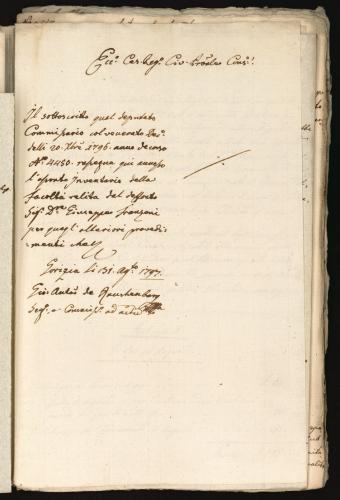 Ecc. Ces. Reg. Civ. Consi.
Il sottoscritto qual deputato
Commissario col venerato Dec.
delli 20. Xbre 1796. anno decorso
No. 4450. rassegna qui annesso
l'operato Inventario della
facoltà relita dal defonto
Sigr. Dre Giuseppe Franzoni
per quegl' ulteriori provedi-
menti
Gorizia li 31. Agto 1797.
Gio: Anto de
Segr. e Commiss. ad actum